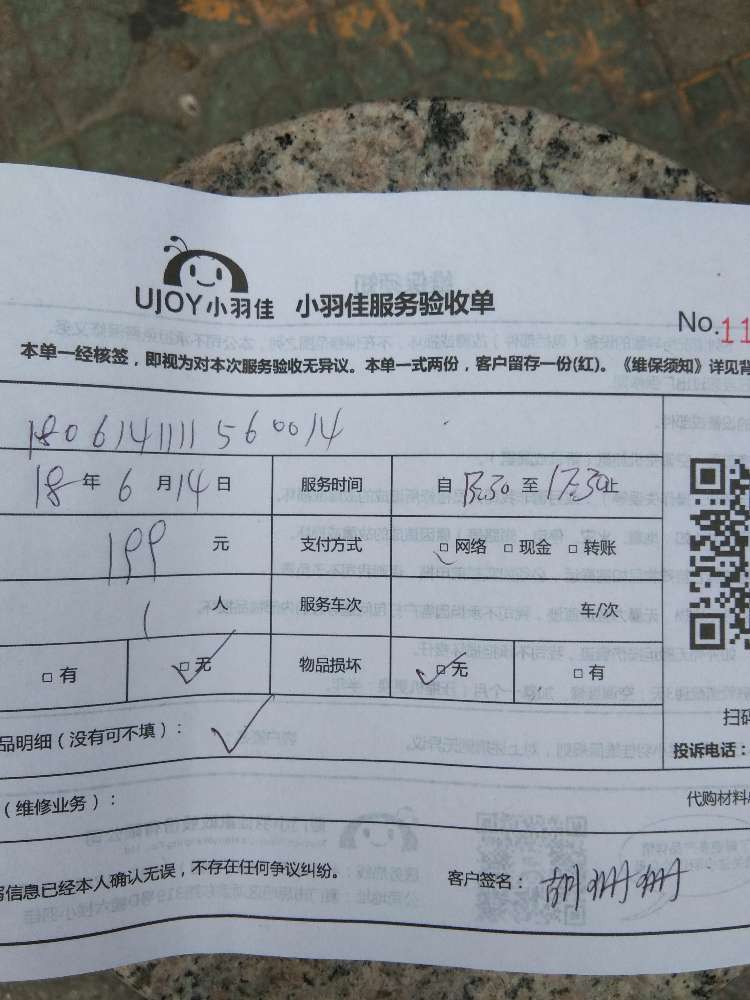 UJOY小羽佳 小羽佳服务验收单
No.11
本单一经核签，即视为对本次服务验收无异议。本单一式两份，客户留存一份(红)。《维保须知》详见背
180614111560014
18年6月14日 服务时间 自13:30至17:30止
199元 支付方式 □网络 □现金 □转账
1人 服务车次 车/次
□有 □无 物品损坏 □无 □有
扫码
品明细（没有可不填）：
投诉电话：
（维修业务）：
代购材料
信息已经本人确认无误，不存在任何争议纠纷。 客户签名：胡珊珊